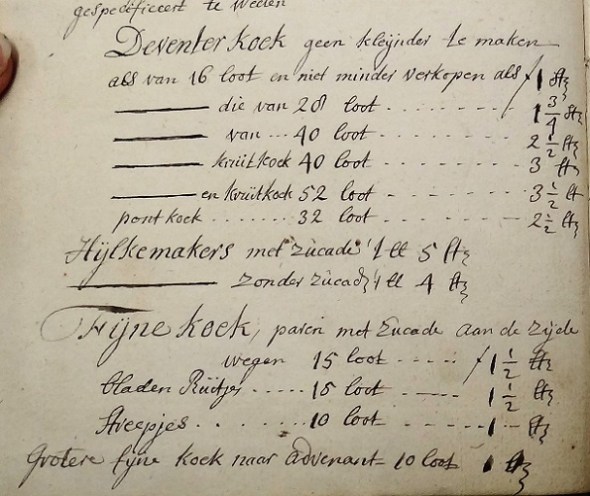 gespedificeert te weeten
Deventer Koek geen kleijnder te maken
als van 16 loot en niet minder verkopen als f 1 stz
——— die van 28 loot - - - - - - - 1 3/4 stz
——— van --- 40 loot - - - - - - - 2 1/2 stz
——— kruitkoek 40 loot - - - - - - 3 stz
——— en kruitkoek 52 loot - - - - - - 3 1/2 st
pont koek ....... 32 loot - - - - - - 2 1/2 stz
Hijlkemakers met zucade 1 lb 5 stz
——— zonder zucade 1 lb 4 stz
Fijne Koek, paren met Zucade aan de Zijde
wegen 15 loot - - - - - f 1 1/2 stz
bladen Ruitjes ..... 15 loot - - - - 1 1/2 stz
Streepjes ....... 10 loot - - - - - 1 - stz
Grotere fijne Koek naar advenant 10 loot 1 stz